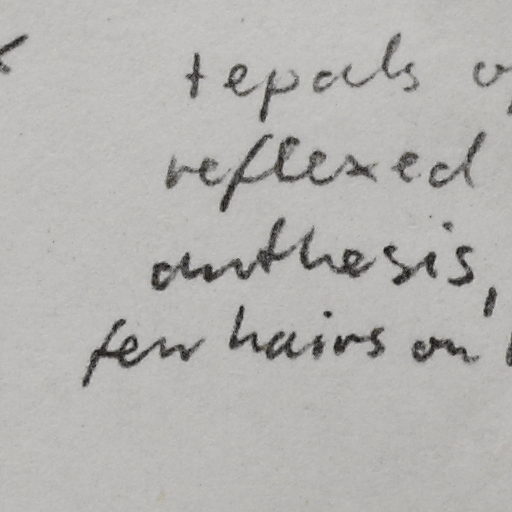 tepals
reflexed
anthesis,
few hairs on